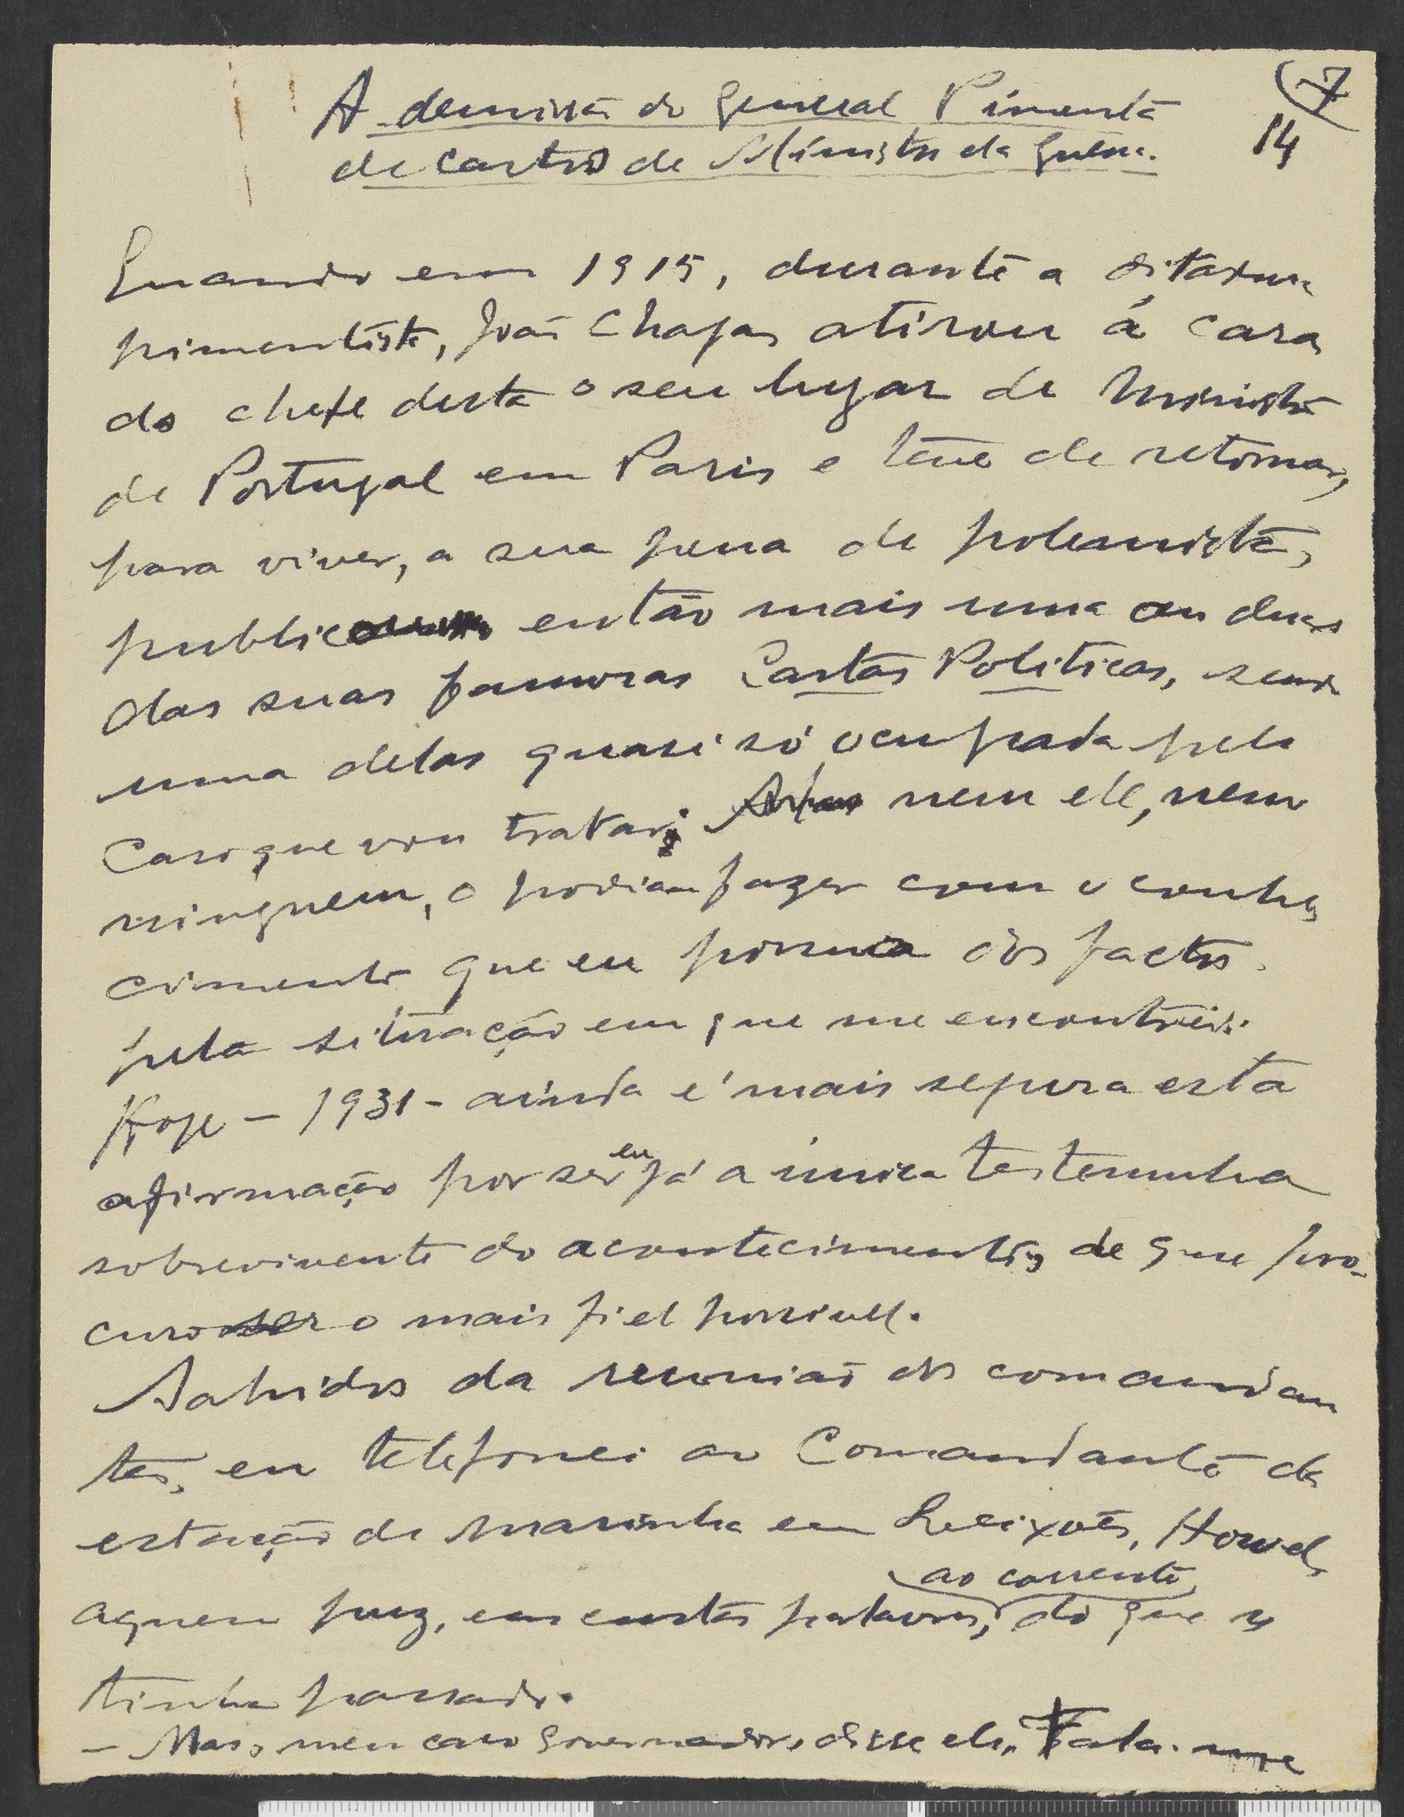 7
14
A demissão do General Pimenta
de Castro de Ministro da Guerra.
Quando em 1915, durante a ditadura
pimentista, João Chagas atirou á cara
do chefe desta o seu lugar de Ministro
de Portugal em Paris e teve de retomar,
para viver, a sua pena de polemista,
publicou então mais uma ou duas
das suas famosas Cartas Politicas, sendo
uma delas quasi só ocupada pelo
caso que vou tratar; nem ele, nem
ninguem, o podiam fazer com o conhe
cimento que eu possuia dos factos
pela situação em que me encontrei.
Hoje - 1931 - ainda é mais segura esta
afirmação por ser eu já a unica testemunha
sobrevivente do acontecimento, de que pro-
curo ser o mais fiel possivel.
Sahidos da reunião dos comandan
tes, eu telefonei ao Comandante da
estação de marinha em Leixões, Howel,
a quem puz, em curtas palavras, ao corrente do que se
tinha passado.
- Mas, meu caro Governador, disse ele. Fala-me